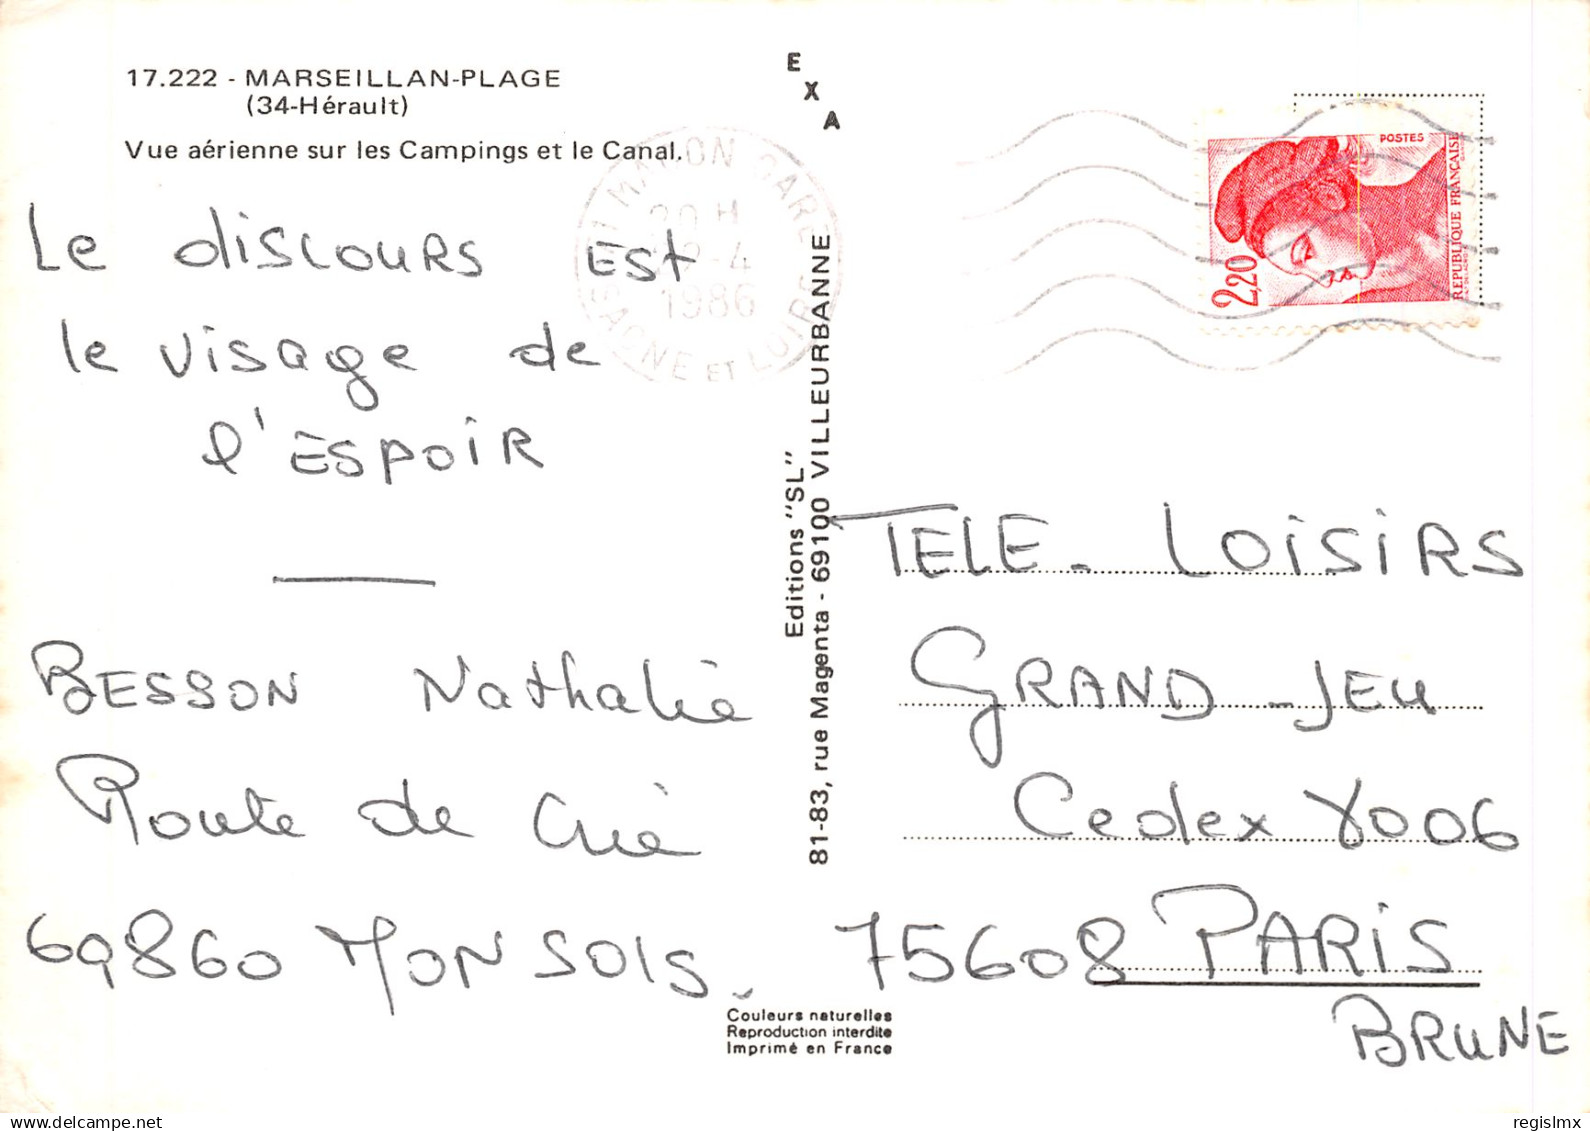 17.222 - MARSEILLAN-PLAGE
(34-Hérault)
Vue aérienne sur les Campings et le Canal.
E
X
A
Le discours est
le visage de
l'ESPOIR
BESSON Nathalie
Route de
69860 MONSOLS
Editions "SL"
81-83, rue Magenta - 69100 VILLEURBANNE
GARE
20 H
-4
1986
SAONE ET LOIRE
POSTES
2,20
REPUBLIQUE FRANÇAISE
TELE-LOISIRS
GRAND-JEU
Cedex 8006
75608 PARIS
BRUNE
Couleurs naturelles
Reproduction interdite
Imprimé en France
regislmx